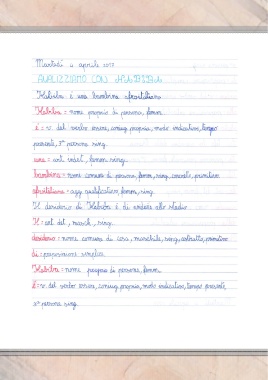 Martedì 4 aprile
ANALIZZIAMO CON HABIBA
Habiba è una bambina afroitaliana.
Habiba = nome proprio di persona, femm.
è = v. del verbo essere, coniug. propria, modo indicativo, tempo
presente, 3ª persona sing.
una = art. indet., femm. sing.
bambina = nome comune di persona, femm., sing. concreto, primitivo
afroitaliana = agg. qualificativo, femm., sing.
Il desiderio di Habiba è di andare allo stadio.
Il = art. det., masch., sing.
desiderio = nome comune di cosa, maschile, sing., astratto, primitivo
di = preposizione semplice
Habiba = nome proprio di persona, femm.
È = v. del verbo essere, coniug. propria, modo indicativo, tempo presente
3ª persona sing.